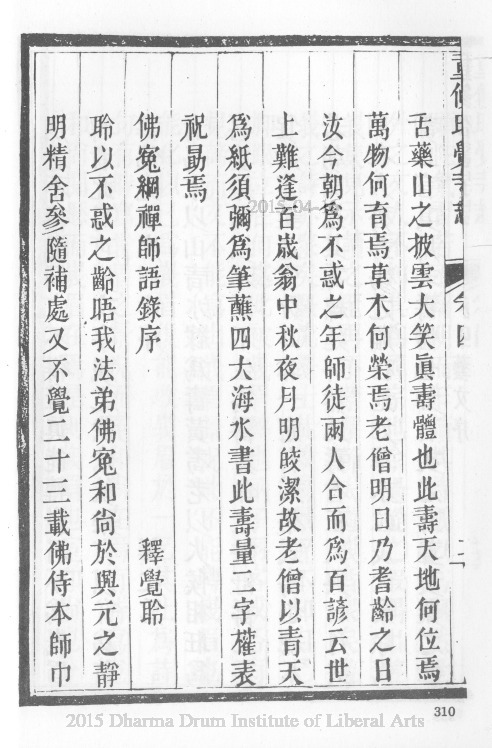 舌藥山之披雲大笑眞壽體也此壽天地何位焉
萬物何育焉草木何榮焉老僧明日乃耆齡之日
汝今朝爲不惑之年師徒兩人合而爲百諺云世
上難逢百歲翁中秋夜月明皎潔故老僧以青天
爲紙須彌爲筆蘸四大海水書此壽量二字權表
祝勗焉
佛寃綱禪師語錄序
釋覺聆
聆以不惑之齡唔我法弟佛寃和尙於興元之靜
明精舍參隨補處又不覺二十三載佛侍本師巾
卷四
310
2015 Dharma Drum Institute of Liberal Arts